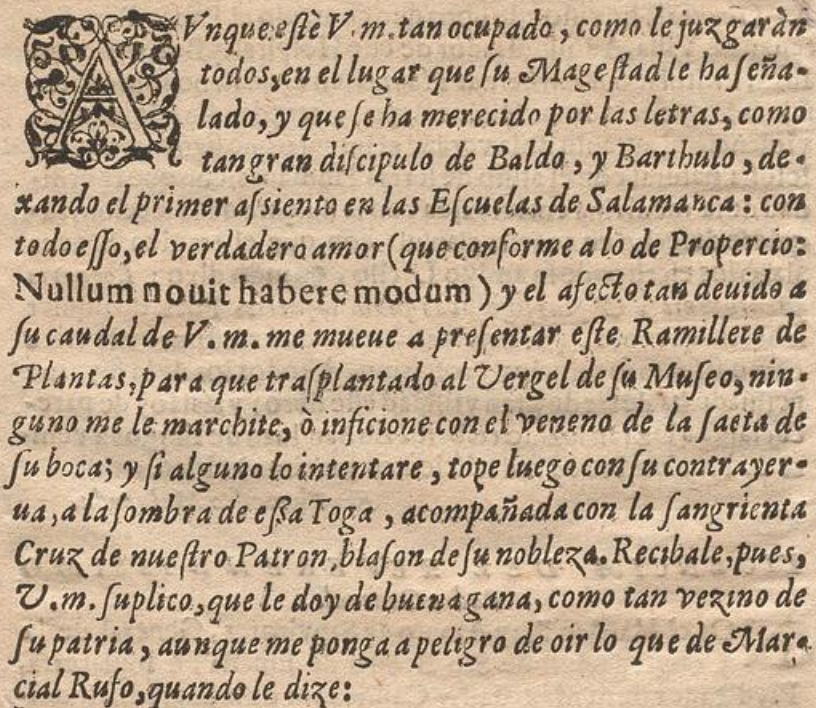 AVnque estè V.m. tan ocupado, como le juzgaràn
todos, en el lugar que su Magestad le ha seña-
lado, y que se ha merecido por las letras, como
tan gran discipulo de Baldo, y Barthulo, de-
xando el primer assiento en las Escuelas de Salamanca: con
todo esso, el verdadero amor (que conforme a lo de Propercio:
Nullum nouit habere modum) y el afecto tan deuido a
su caudal de V.m. me mueue a presentar este Ramillete de
Plantas, para que trasplantado al Vergel de su Museo, nin-
guno me le marchite, ò inficione con el veneno de la saeta de
su boca; y si alguno lo intentare, tope luego con su contrayer-
ua, a la sombra de essa Toga, acompañada con la sangrienta
Cruz de nuestro Patron, blason de su nobleza. Recibale, pues,
V.m. suplico, que le doy de buena gana, como tan vezino de
su patria, aunque me ponga a peligro de oir lo que de Mar-
cial Rufo, quando le dize: